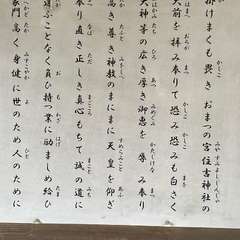 掛けまくも畏き おまつの宮住吉神社の
大前を拝み奉りて恐み恐みも白さく
大神等の広き厚き御恵を 辱み奉り
高き尊き神教のまにまに 天皇を仰ぎ
奉り直き正しき真心もちて 誠の道に
違ふことなく負ひ持つ業に励ましめ給ひ
家門高く身健に世のため人のために